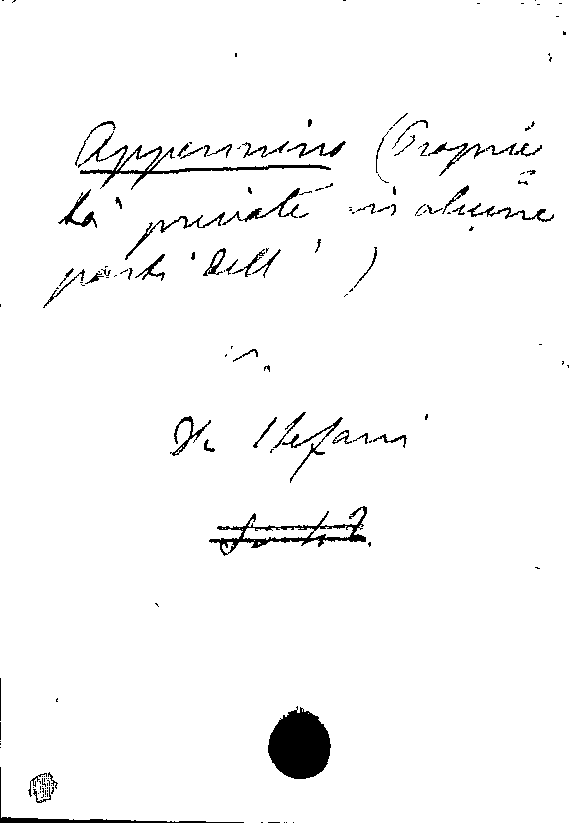 Appennino (Proprie
tà private in alcune
parti dell')
De Stefani